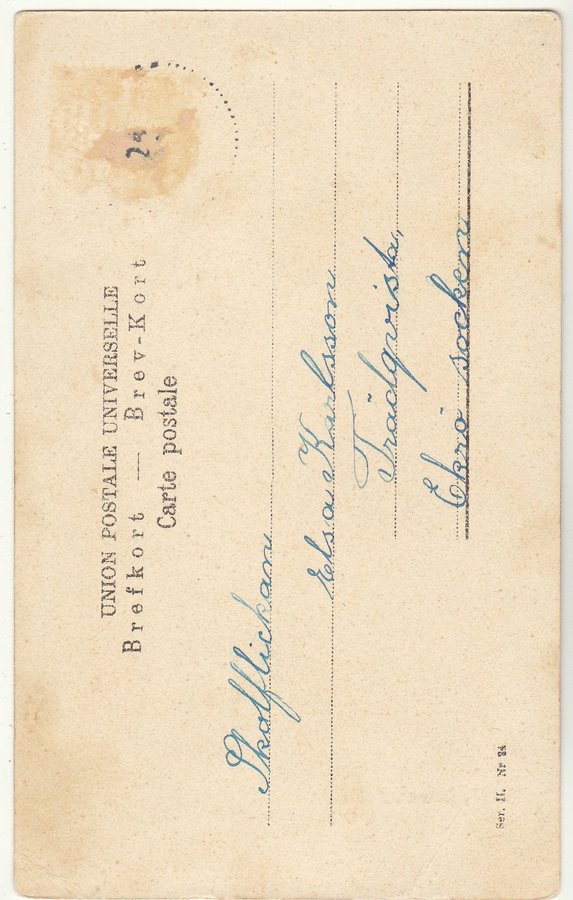 UNION POSTALE UNIVERSELLE
Brefkort — Brev-Kort
Carte postale
Skolflickan
Elsa Karlsson
Trädqvista,
Ekrö socken
Ser. II. Nr 24